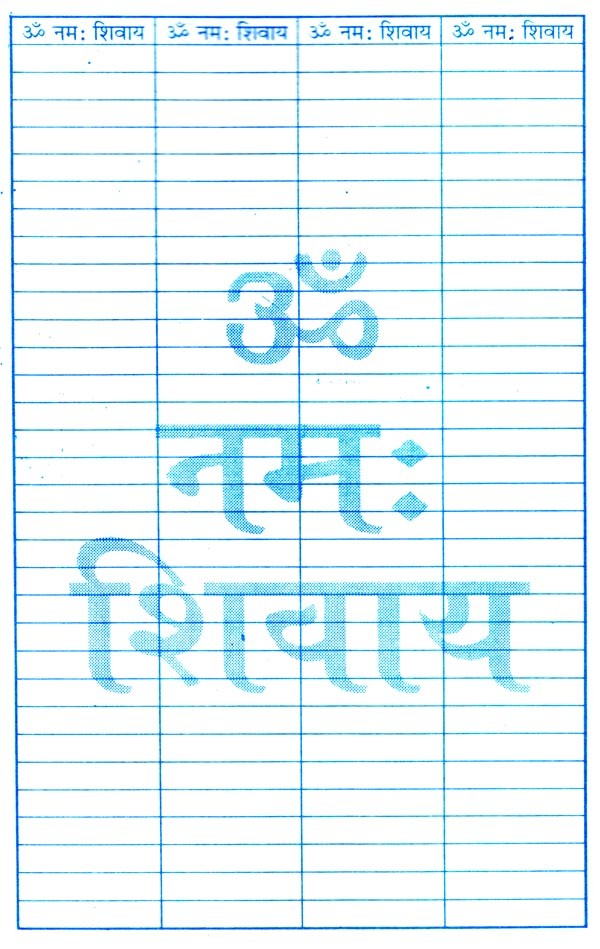 ॐ नम: शिवाय ॐ नम: शिवाय ॐ नम: शिवाय ॐ नम: शिवाय
ॐ
नम:
शिवाय